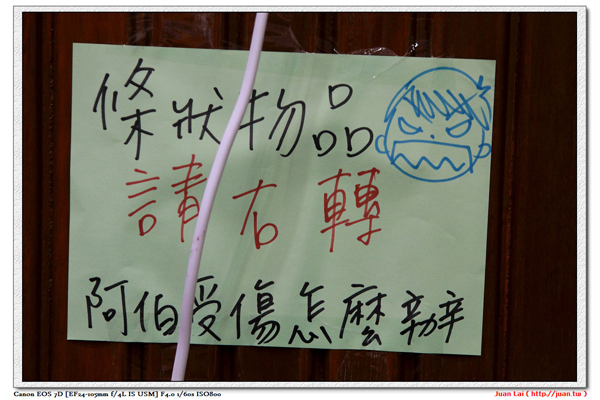 條狀物品
請右轉
阿伯受傷怎麼辦
Canon EOS 7D [EF24-105mm f/4L IS USM] F4.0 1/60s ISO800
Juan Lai ( http://juan.tw )